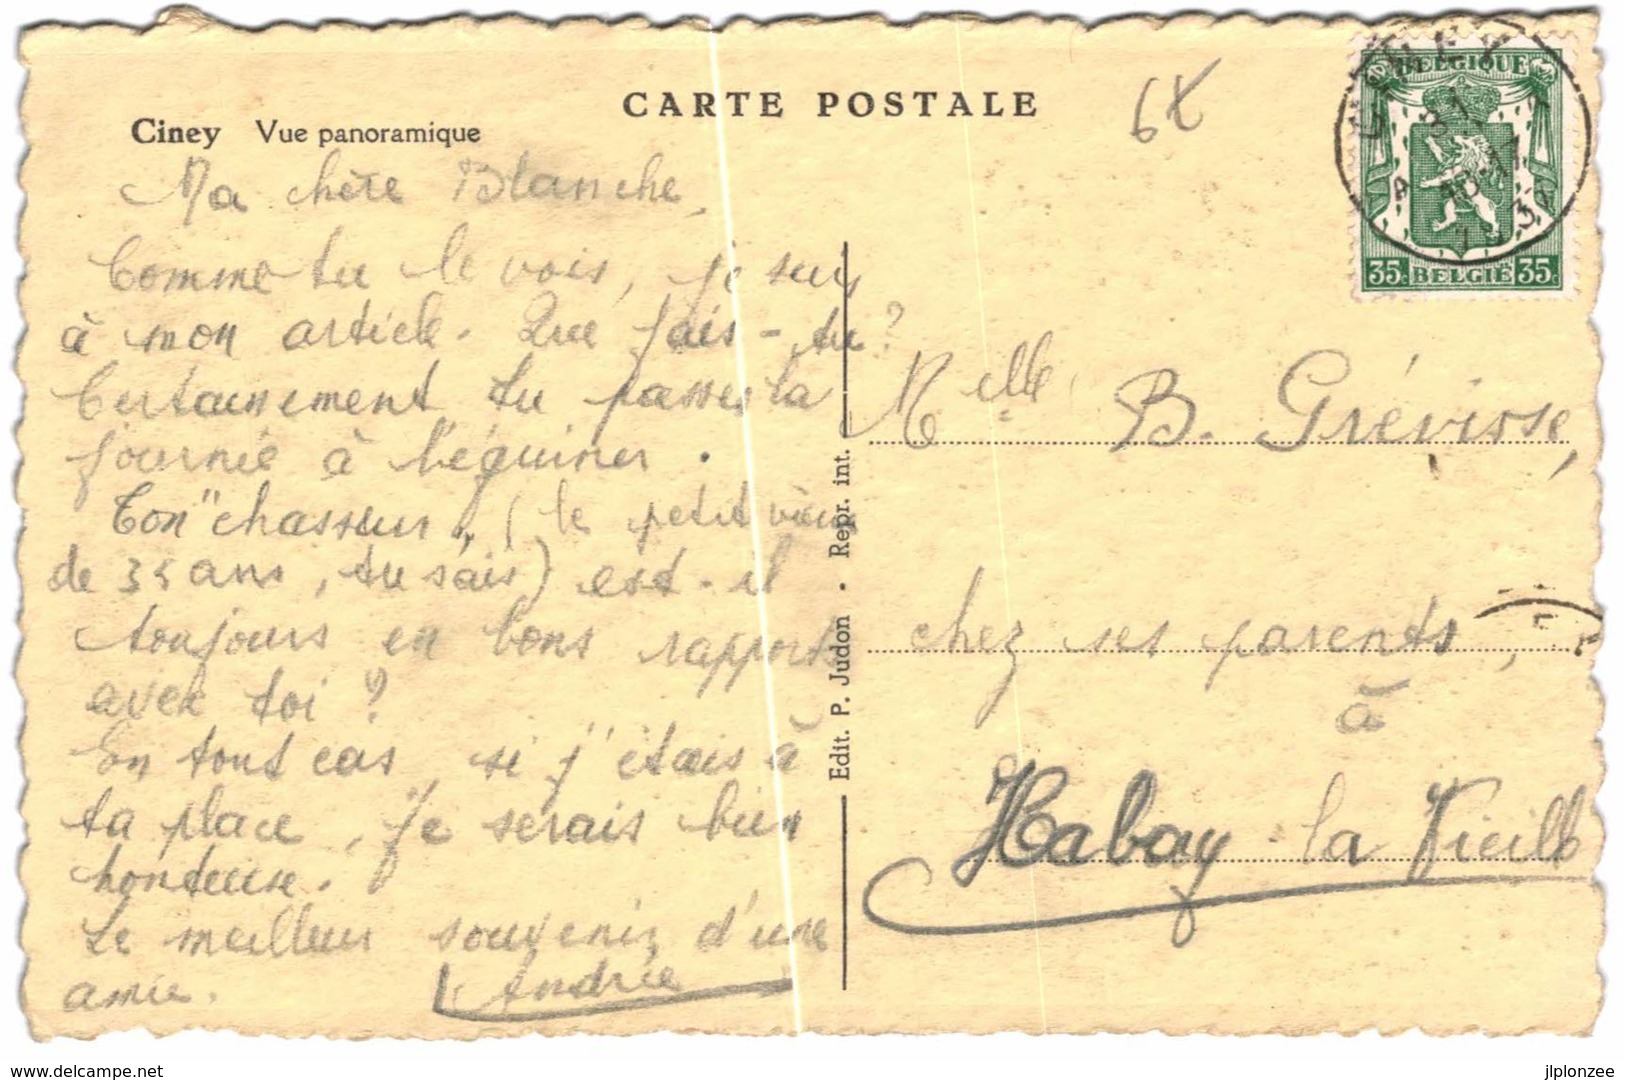 CARTE POSTALE
6t
Ciney Vue panoramique
Ma chère Blanche,
Comme tu le vois, je suis
à mon article. Que fais-tu?
Certainement tu passes la
journée à
Ton "chasseur" (le petit vieux
de 35 ans, tu sais) est-il
toujours en bons rapports
avec toi?
En tout cas, si j'étais à
ta place, je serais bien
honteuse.
Le meilleur souvenir d'une
amie.
Andrée
Edit. P. Judon • Repr. int.
BELGIQUE
35c BELGIË 35c
CINEY
Melle B. Grévisse,
chez ses parents,
à
Habay-la Vieille
delcampe.net
jlplonzee